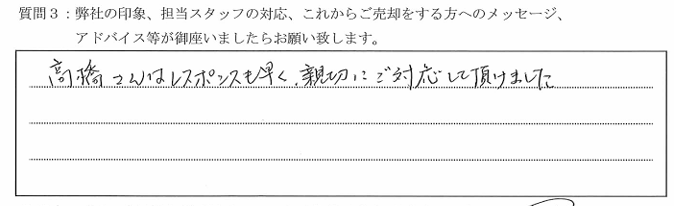 質問3：弊社の印象、担当スタッフの対応、これからご売却をする方へのメッセージ、
アドバイス等が御座いましたらお願い致します。
高橋さんはレスポンスも早く、親切にご対応して頂けました